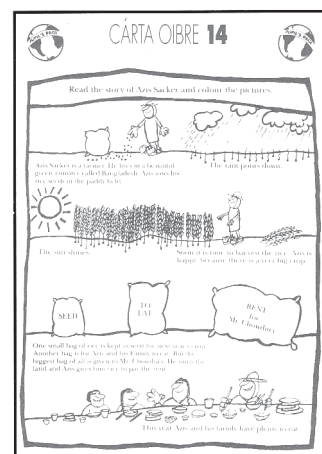 CÁRTA OIBRE 14
Read the story of Azis Sacker and colour the pictures.
Azis Sacker is a farmer. He lives in a beautiful
green country called Bangladesh. Azis sows his
rice seeds in the paddy field.
The rain pours down.
The sun shines.
Soon it is time to harvest the rice. Azis is
happy, because there is a very big crop.
SEED
TO
EAT
RENT
for
Mr. Chowdury
One small bag of rice is kept as seed for next year's crop.
Another bag is for Azis and his family to eat. But the
biggest bag of all is given to Mr. Chowdury. He owns the
land and Azis gives him rice to pay the rent.
This year Azis and his family have plenty to eat.